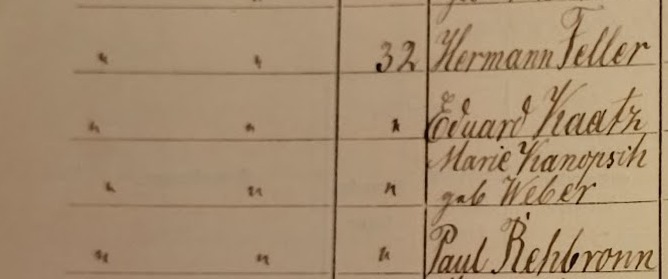 " " 32 Hermann Feller
" " " Eduard Kaatz
Marie Kanopsih
" " " geb Weber
" " " Paul Rehbronn